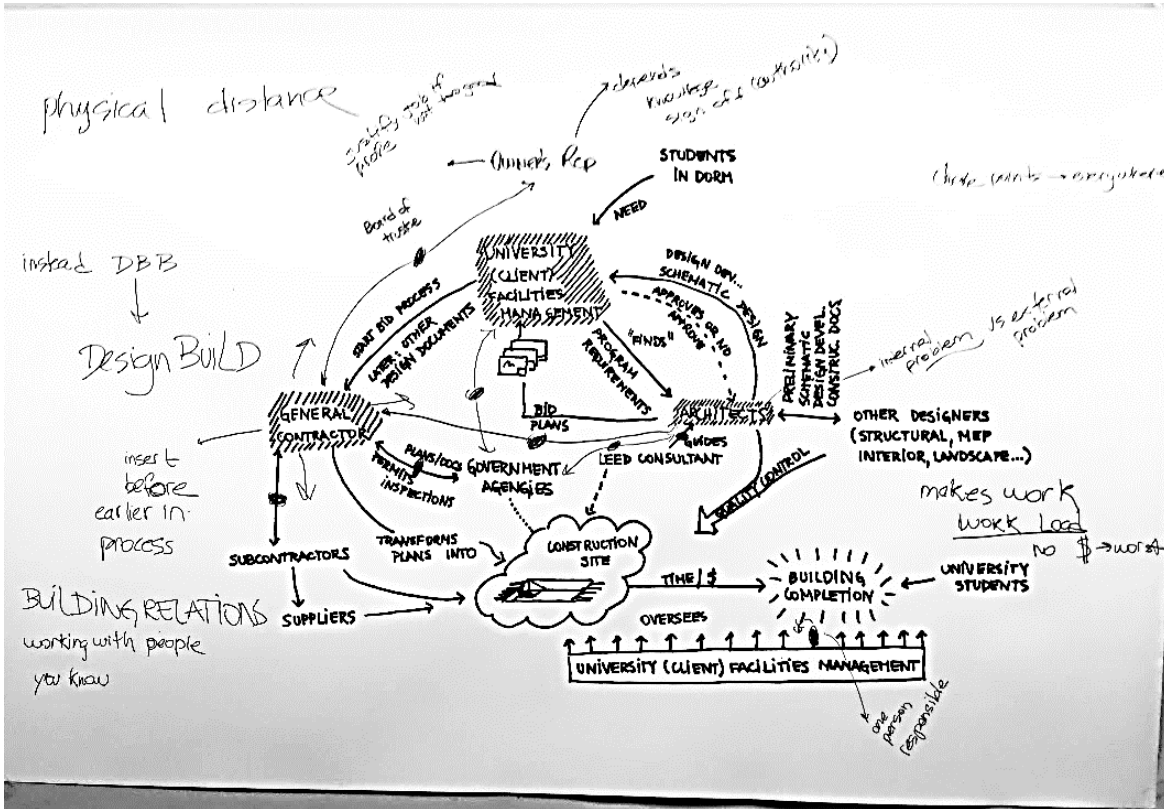 physical distance
satisfy job if
not
profit
depends
knowledge
sign off (controller)
Owner's Rep
STUDENTS
IN DORM
NEED
everywhere
Board of
truste
instead DBB
Design BUILD
UNIVERSITY
(CLIENT)
FACILITIES
MANAGEMENT
START BID PROCESS
LATER: OTHER
DESIGN DOCUMENTS
DESIGN DEV...
SCHEMATIC DESIGN
APPROVES OR NO
APPROVE
"FINDS"
PROGRAM
REQUIREMENTS
PRELIMINARY
SCHEMATIC
DESIGN DEVEL.
CONSTRUC. DOCS
internal
problem vs external
problem
GENERAL
CONTRACTOR
BID
PLANS
ARCHITECTS
OTHER DESIGNERS
(STRUCTURAL, MEP
INTERIOR, LANDSCAPE...)
GUIDES
LEED CONSULTANT
PLANS/DOCS
PERMITS
INSPECTIONS
GOVERNMENT
AGENCIES
QUALITY CONTROL
insert
before
earlier in
process
makes work
work load
no $ → worst
SUBCONTRACTORS
TRANSFORMS
PLANS INTO
CONSTRUCTION
SITE
TIME/$
BUILDING
COMPLETION
UNIVERSITY
STUDENTS
BUILDING RELATIONS
working with people
you know
SUPPLIERS
OVERSEES
UNIVERSITY (CLIENT) FACILITIES MANAGEMENT
one
person
responsible